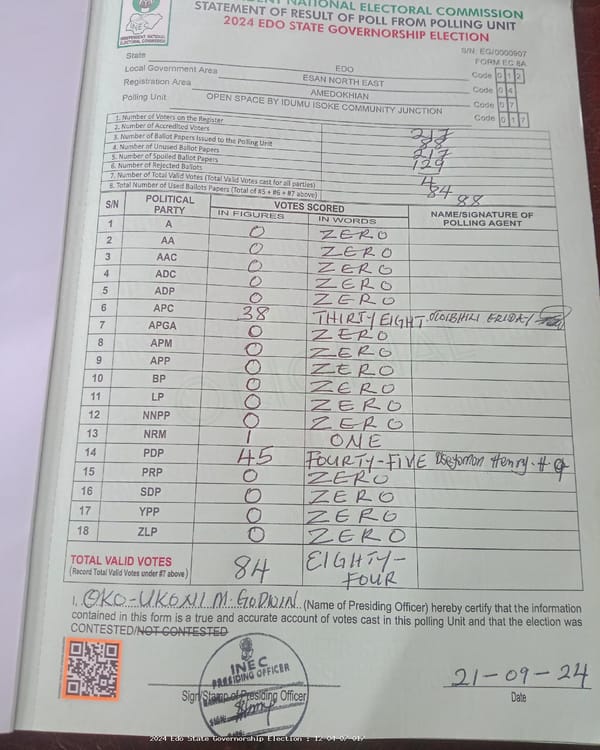 INDEPENDENT NATIONAL ELECTORAL COMMISSION
STATEMENT OF RESULT OF POLL FROM POLLING UNIT
2024 EDO STATE GOVERNORSHIP ELECTION
INEC
INDEPENDENT NATIONAL
ELECTORAL COMMISSION
S/N: EG/0000907
FORM EC 8A
State EDO Code 0 1 2
Local Government Area ESAN NORTH EAST Code 0 4
Registration Area AMEDOKHIAN Code 0 7
Polling Unit OPEN SPACE BY IDUMU ISOKE COMMUNITY JUNCTION Code 0 1 7
1. Number of Voters on the Register 217
2. Number of Accredited Voters 88
3. Number of Ballot Papers Issued to the Polling Unit 217
4. Number of Unused Ballot Papers 129
5. Number of Spoiled Ballot Papers
6. Number of Rejected Ballots 4
7. Number of Total Valid Votes (Total Valid Votes cast for all parties) 84
8. Total Number of Used Ballots Papers (Total of #5 + #6 + #7 above) 88
S/N POLITICAL PARTY VOTES SCORED NAME/SIGNATURE OF POLLING AGENT
IN FIGURES IN WORDS
1 A 0 ZERO
2 AA 0 ZERO
3 AAC 0 ZERO
4 ADC 0 ZERO
5 ADP 0 ZERO
6 APC 38 THIRTY EIGHT
7 APGA 0 ZERO
8 APM 0 ZERO
9 APP 0 ZERO
10 BP 0 ZERO
11 LP 0 ZERO
12 NNPP 0 ZERO
13 NRM 1 ONE
14 PDP 45 FOURTY-FIVE Henry
15 PRP 0 ZERO
16 SDP 0 ZERO
17 YPP 0 ZERO
18 ZLP 0 ZERO
TOTAL VALID VOTES 84 EIGHTY-
(Record Total Valid Votes under #7 above) FOUR
I, OKO-UKONI M. GODWIN (Name of Presiding Officer) hereby certify that the information
contained in this form is a true and accurate account of votes cast in this polling Unit and that the election was
CONTESTED/NOT CONTESTED
INEC
PRESIDING OFFICER
21-09-24
Sign/Stamp of Presiding Officer Date
2024 Edo State Governorship Election : 12-04-07-017